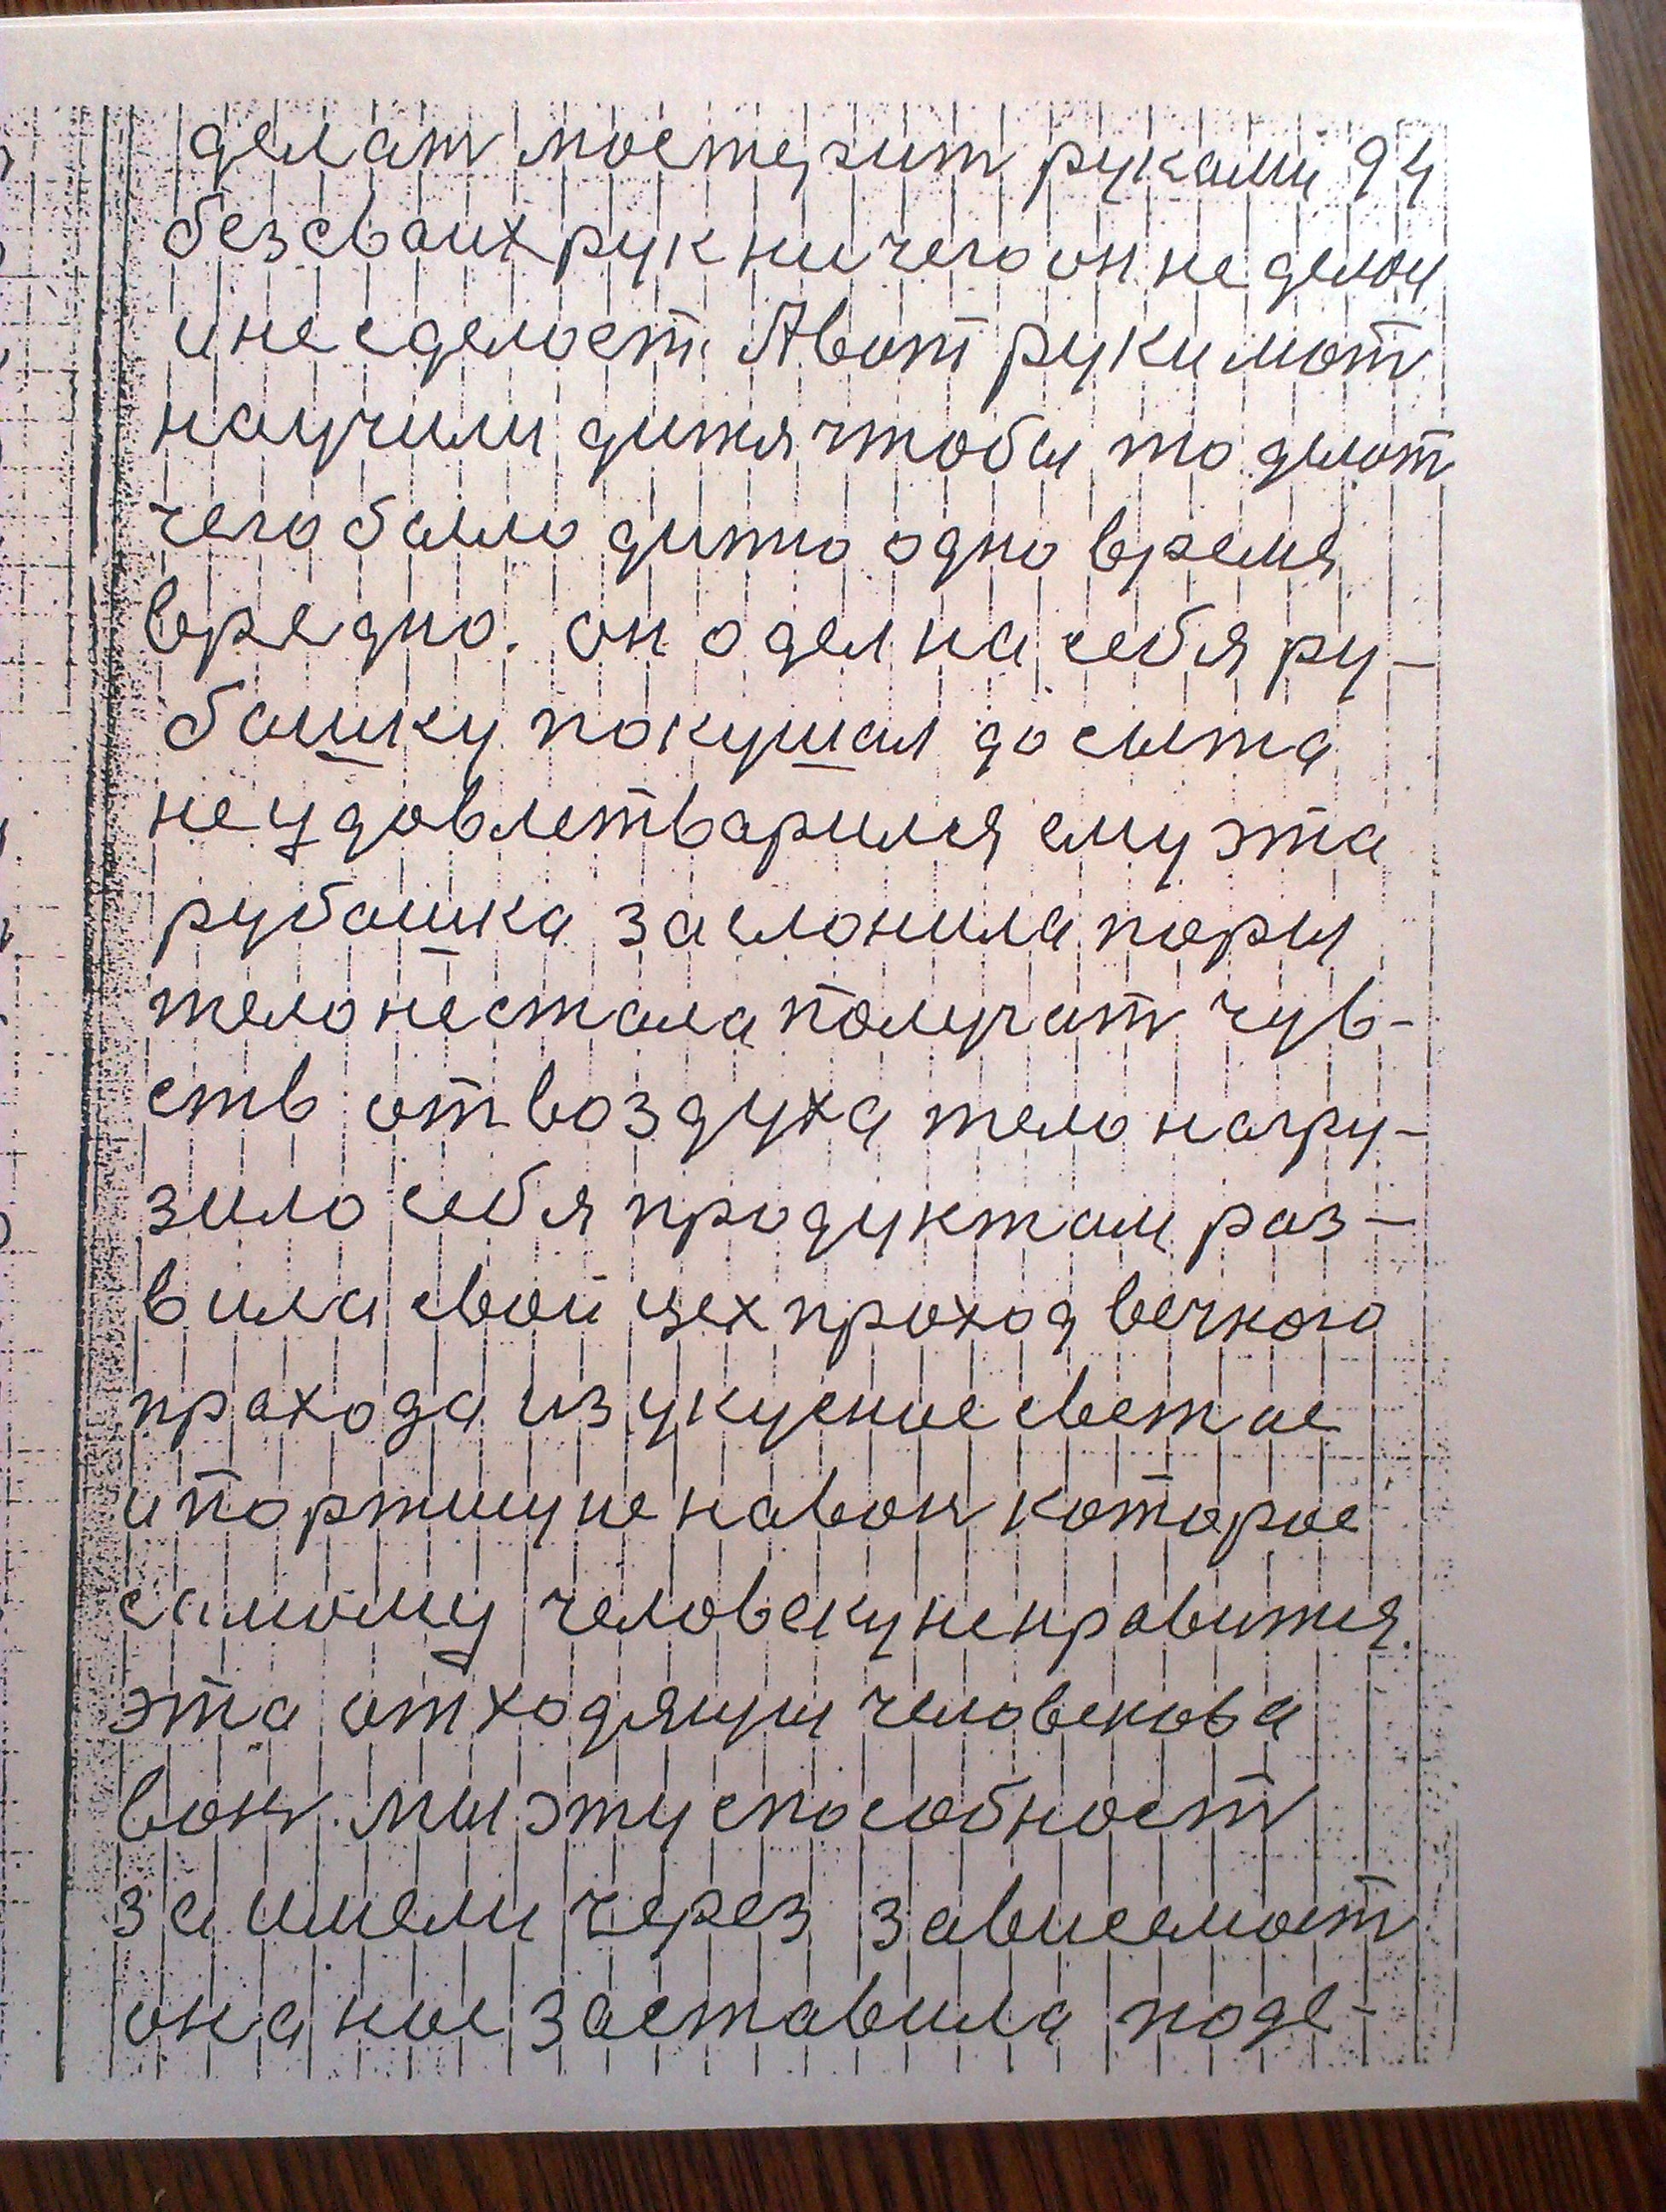 делат мостерит руками 94
без сваих рук ничего он не делол
и не сделоет. А вот руки мат
научили дитя чтобы то делат
чего было дитю одно время
вредно. он одел на себя ру-
башку покушал досыта
не удовлетварился ему эта
рубашка заслонила поры
тело не стала получат чув-
ств от воздуха тело нагру-
зило себя продуктам раз-
вила свой цех проход вечного
прахода из укусные светые
и портицие на вон которое
самому человеку ненравится
эта отходящия человекова
вон мы эту способност
заимели через зависемост
она нас заставила поде-